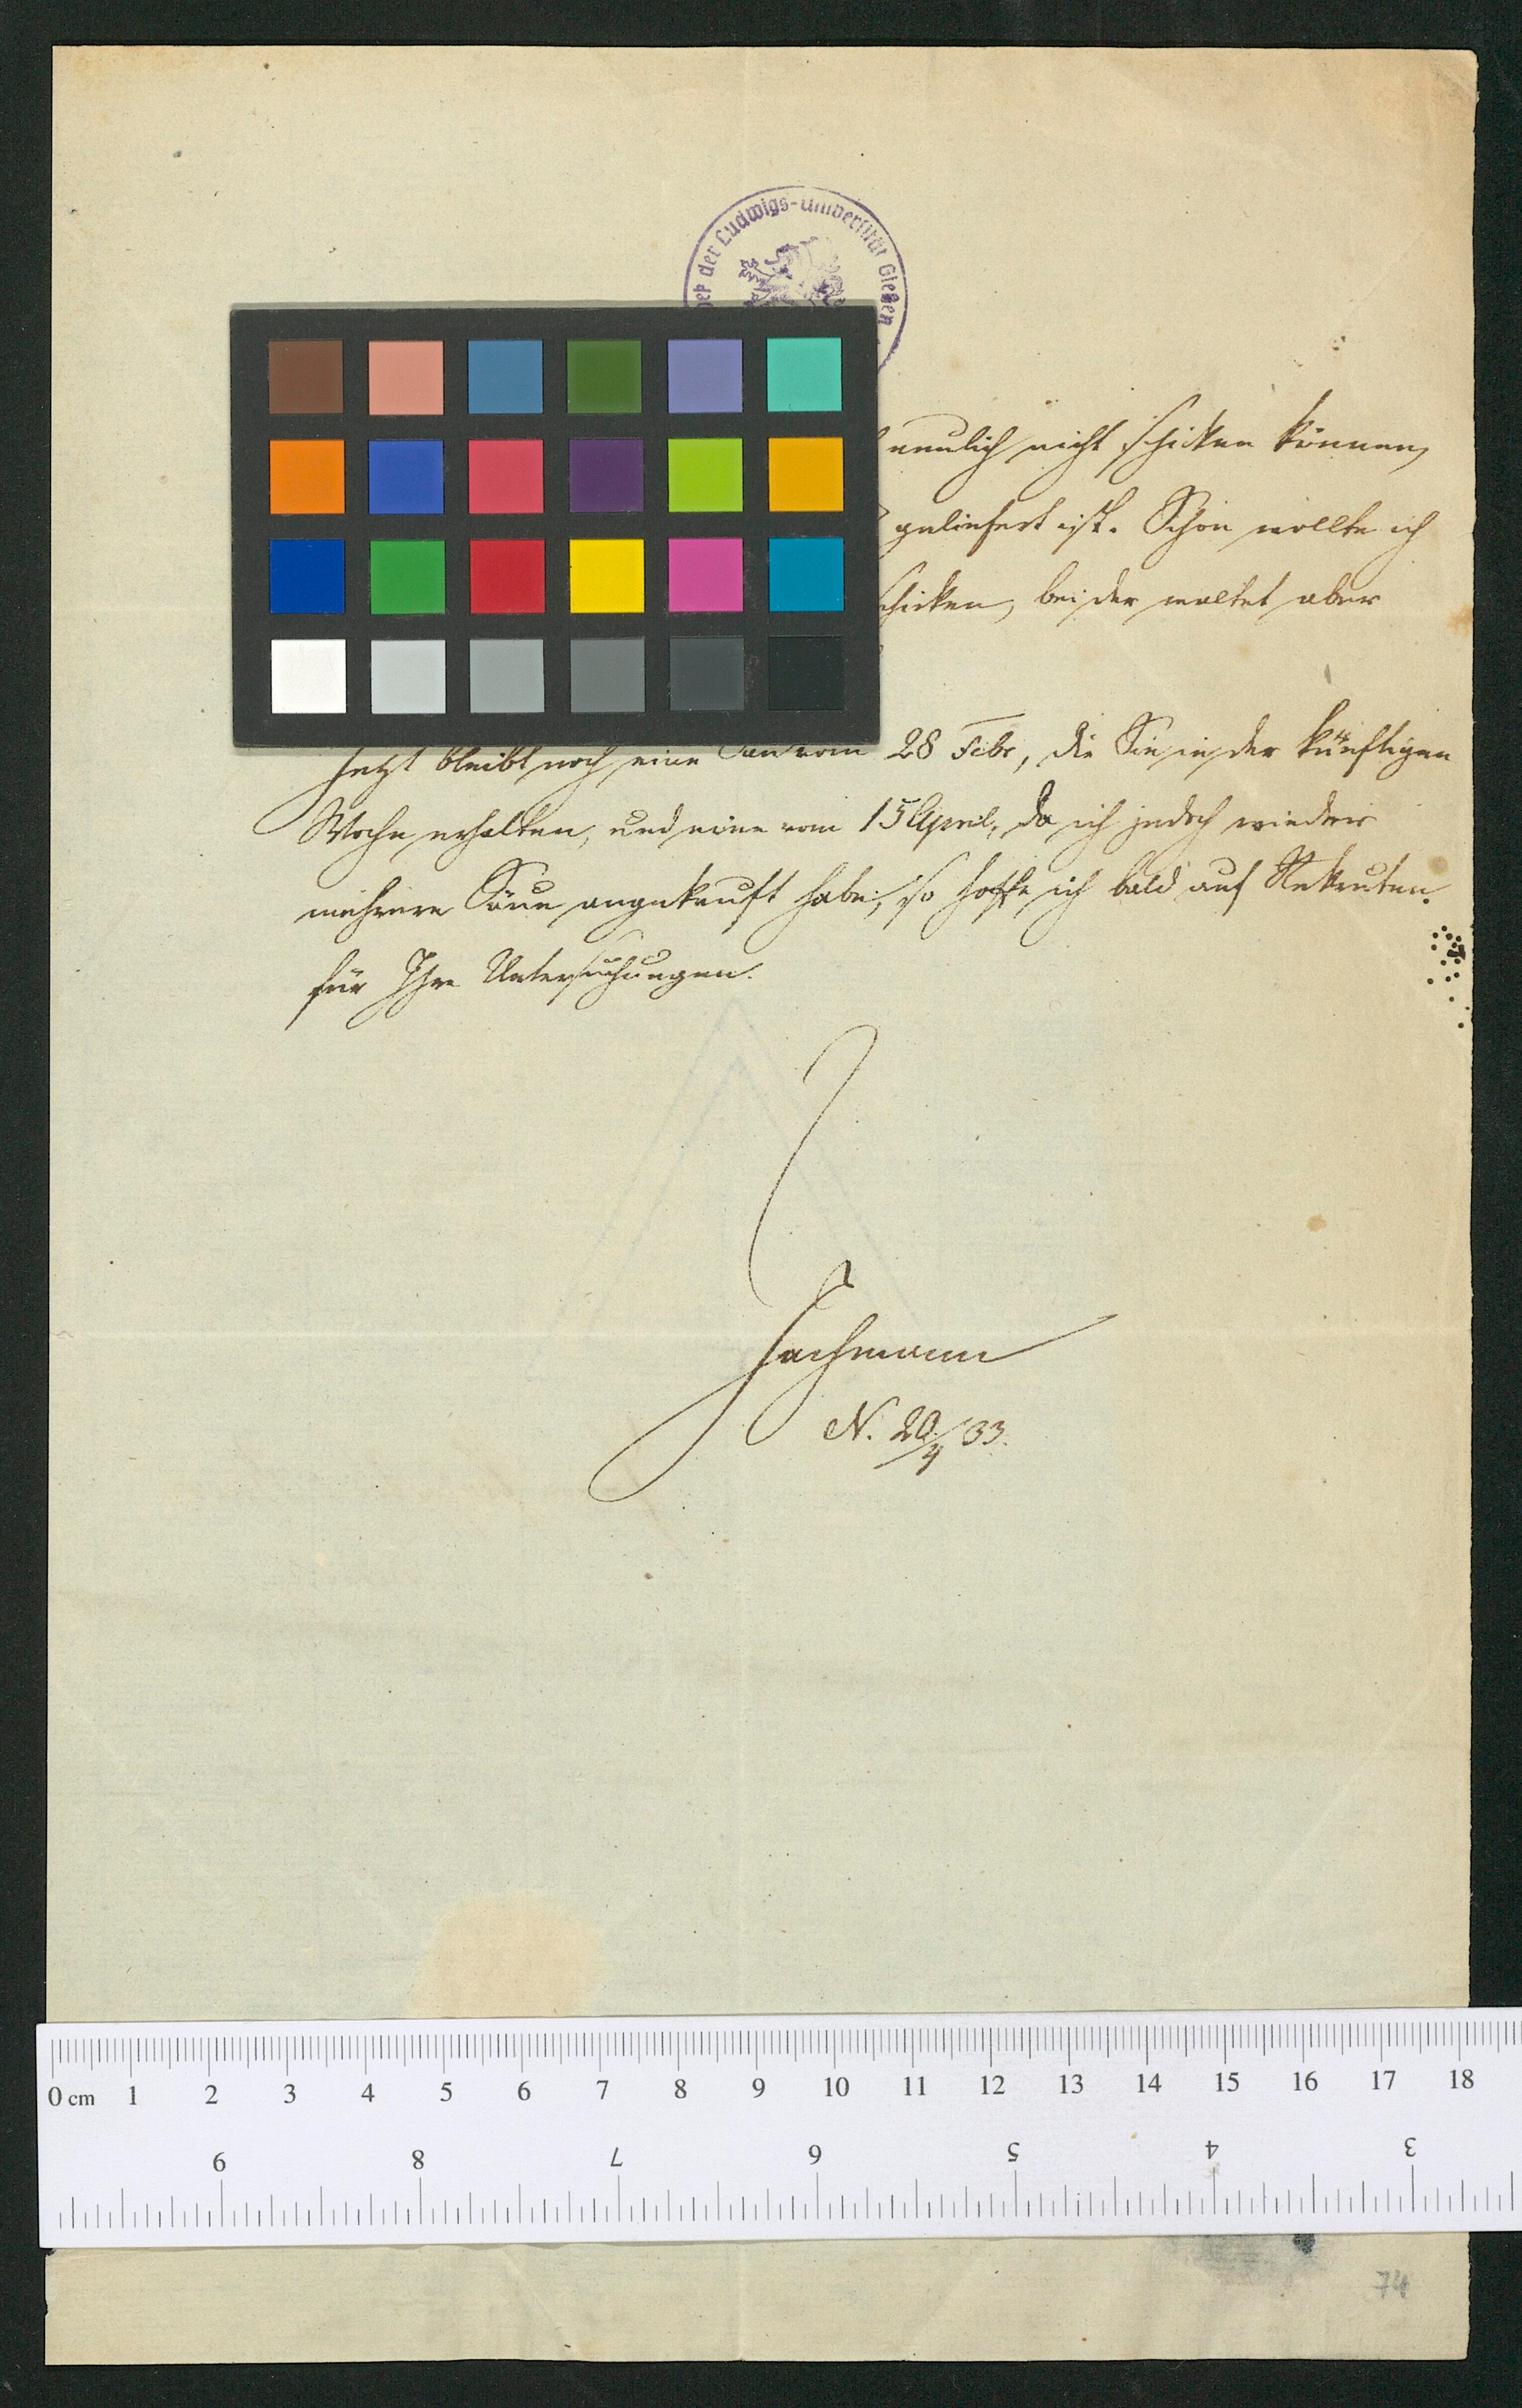 der Ludwigs-Universität Gießen
neulich nicht schicken können,
geliefert ist. Schon wollte ich
schicken, bei der waltet aber
Jetzt bleibt noch eine Sau vom 28 Febr, die Sie in der künftigen
Woche erhalten, und eine vom 15 April, da ich jedoch wieder
mehrere Säue angekauft habe, so hoffe ich bald auf Rekruten
für Ihre Untersuchungen.
Jachmann
N. 20/4 33.
0 cm 1 2 3 4 5 6 7 8 9 10 11 12 13 14 15 16 17 18
9 8 7 6 5 4 3
74